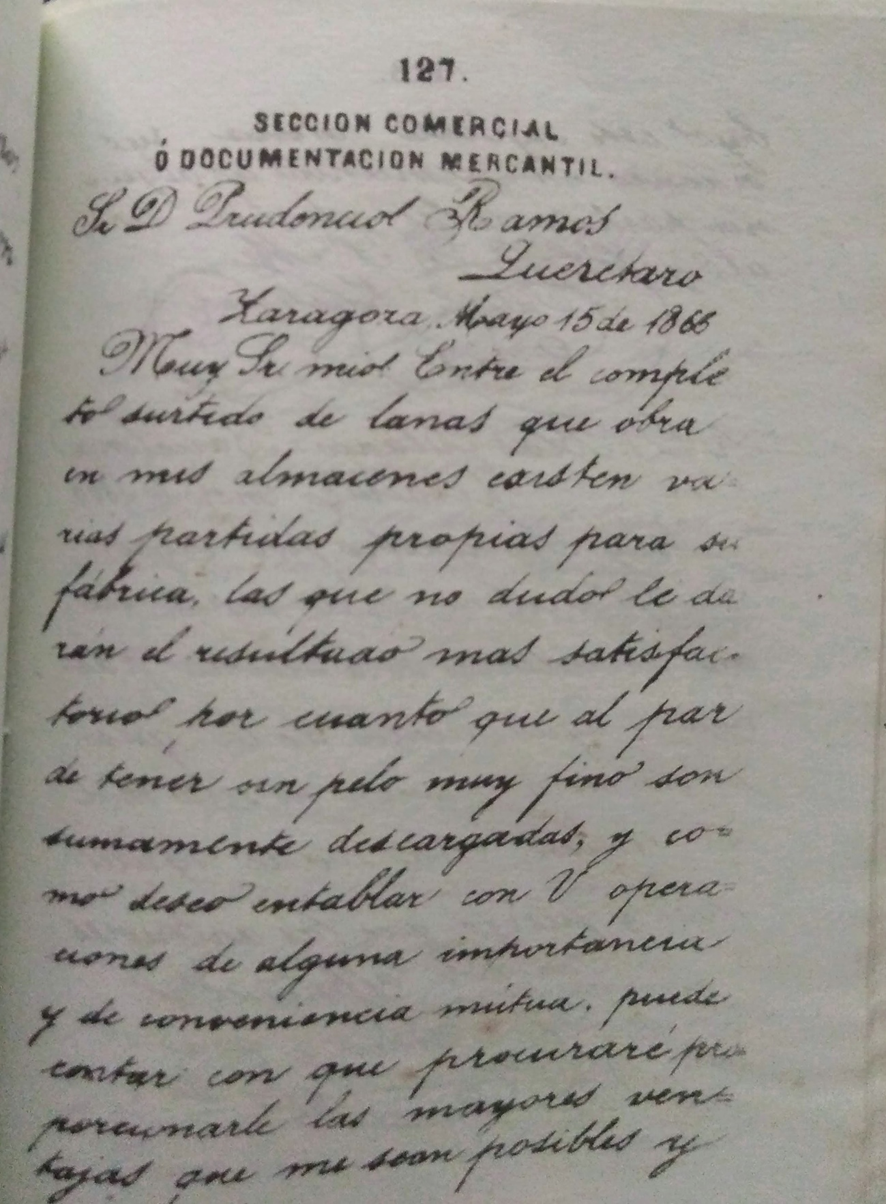 127.
SECCION COMERCIAL
Ó DOCUMENTACION MERCANTIL.
Sr D Prudencio Ramos
Queretaro
Zaragoza, Mayo 15 de 1866
Muy Sr mio Entre el comple
to surtido de lanas que obra
en mis almacenes existen va-
rias partidas propias para su
fábrica, las que no dudo le da
rán el resultado mas satisfac-
torio por cuanto que al par
de tener un pelo muy fino son
sumamente descargadas, y co=
mo deseo entablar con V opera=
ciones de alguna importancia
y de conveniencia mútua. puede
contar con que procuraré pro-
porcionarle las mayores ven=
tajas que me sean posibles y